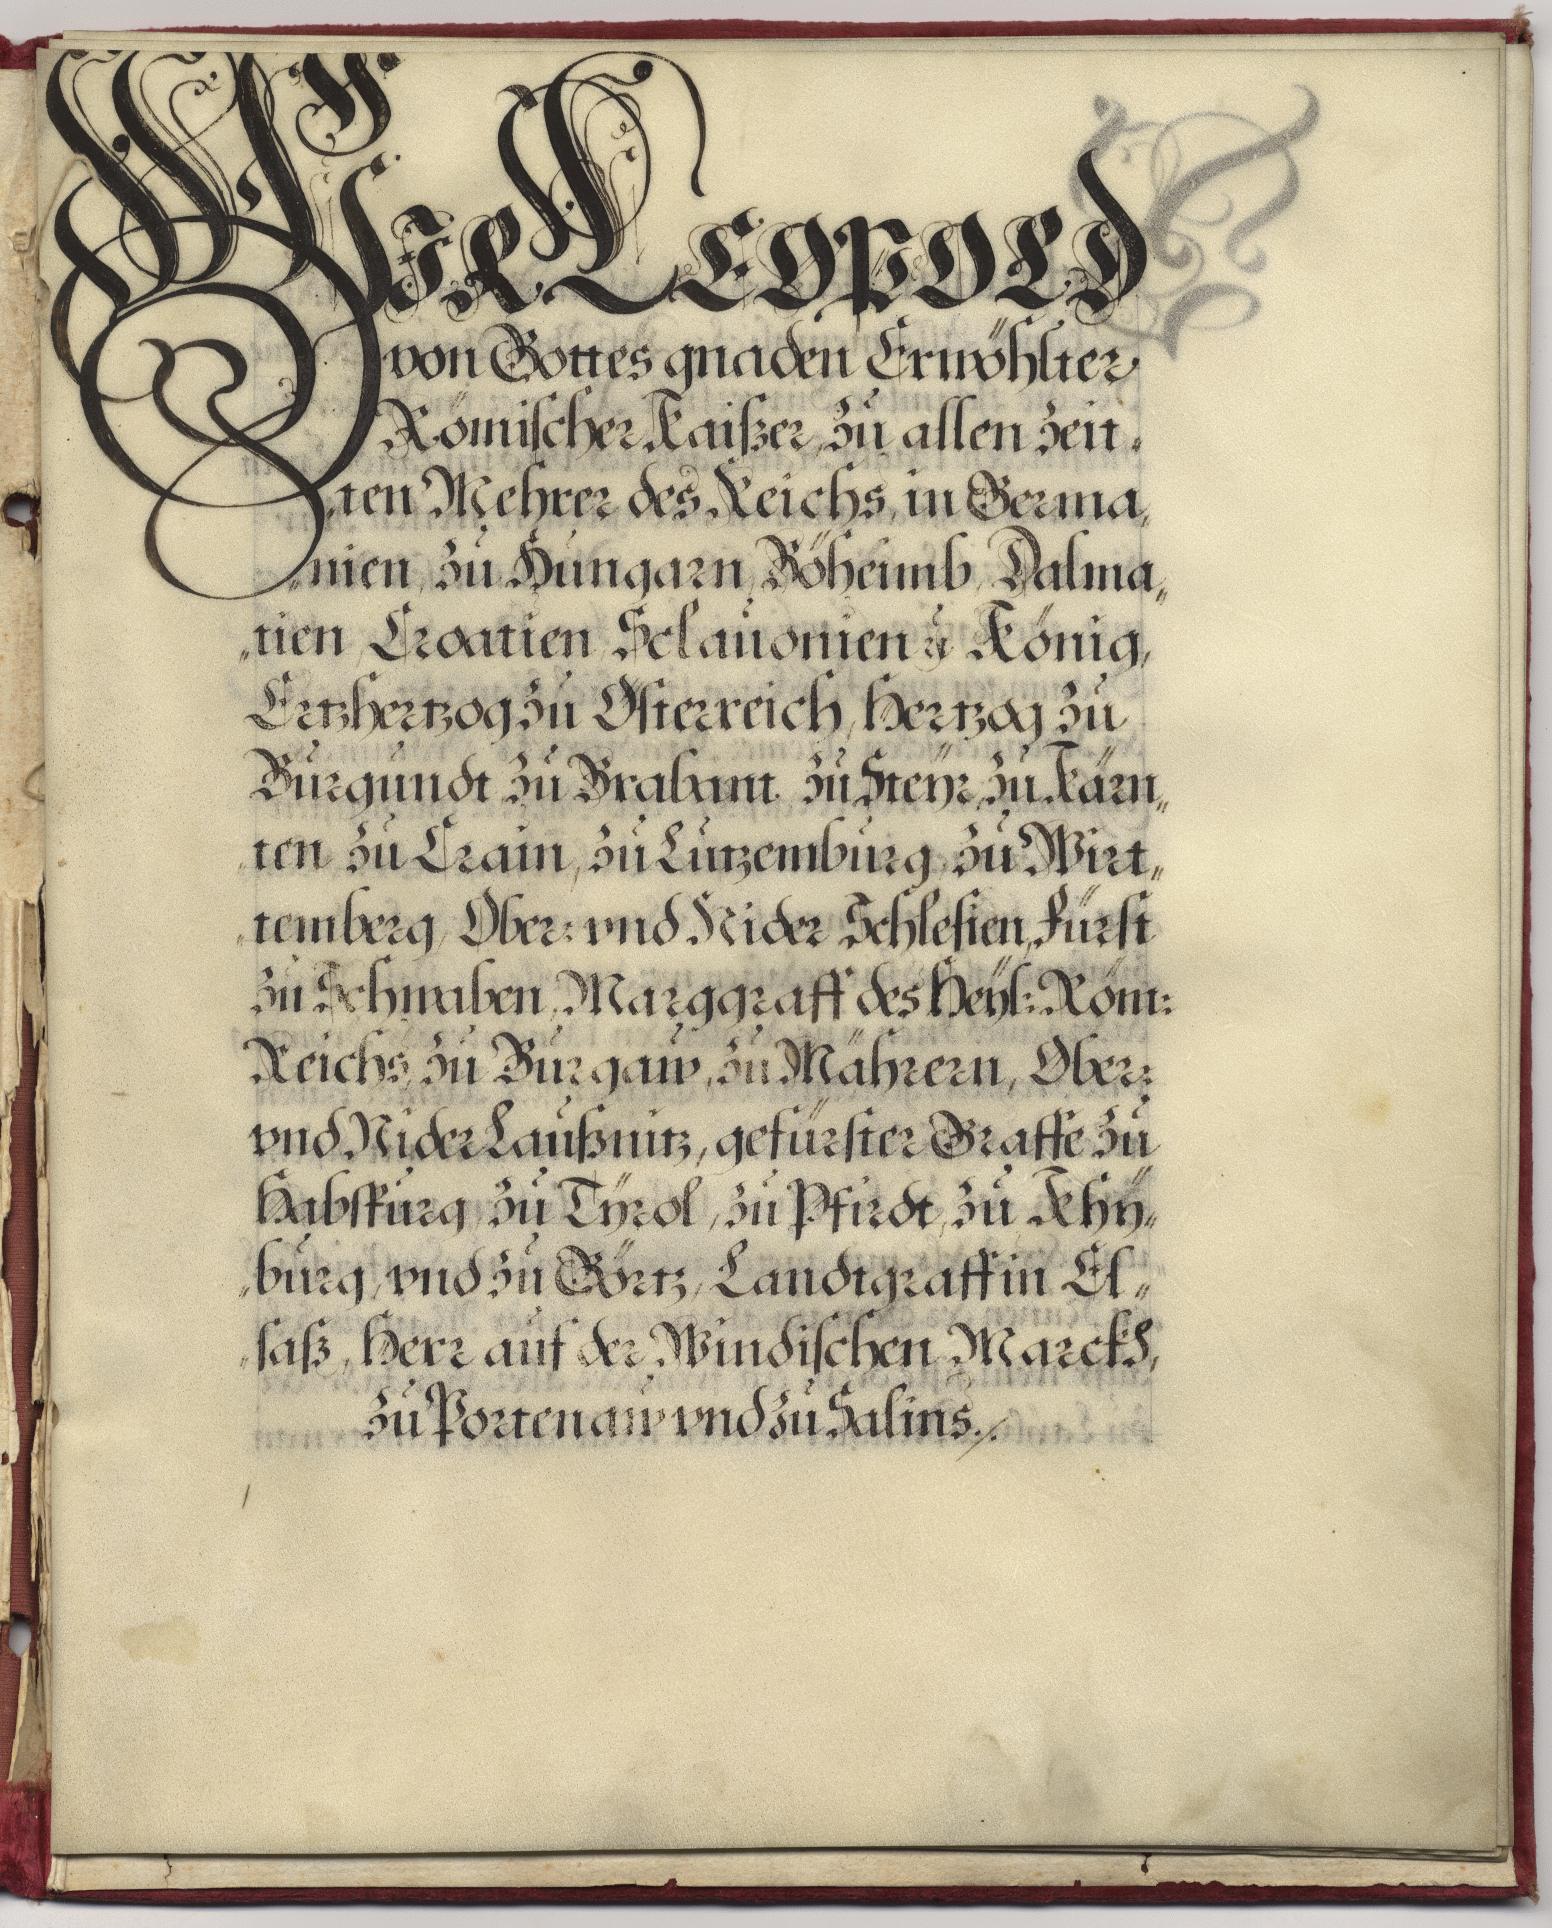 Wir Leopold
von Gottes gnaden Erwöhlter
Römischer Kaißer, zu allen zeit-
ten Mehrer des Reichs, in Germa,
nien, zu Hungarn, Böheimb, Dalma„
„tien, Croatien, Sclauonien ꝛc König,
Ertzhertzog zu Österreich, Hertzog zu
Burgundt zu Brabant zu Steÿr, zu Kärn„
ten zu Crain, zu Lutzemburg, zu Wirt„
„temberg, Ober: vnd Nider Schlesien, Fürst
zu Schwaben, Marggraff des Heÿl: Röm:
Reichs, zu Burgaw, zu Mährern, Ober:
vnd Nider Laußnitz, gefürster Graffe zu
Habspurg, zu Tÿrol, zu Pfirdt, zu Khÿ„
„burg, vnd zu Görtz, Landtgraff in El„
„saß, Herr auf der Windischen Marckh,
zu Portenaw vnd zu Salins./.